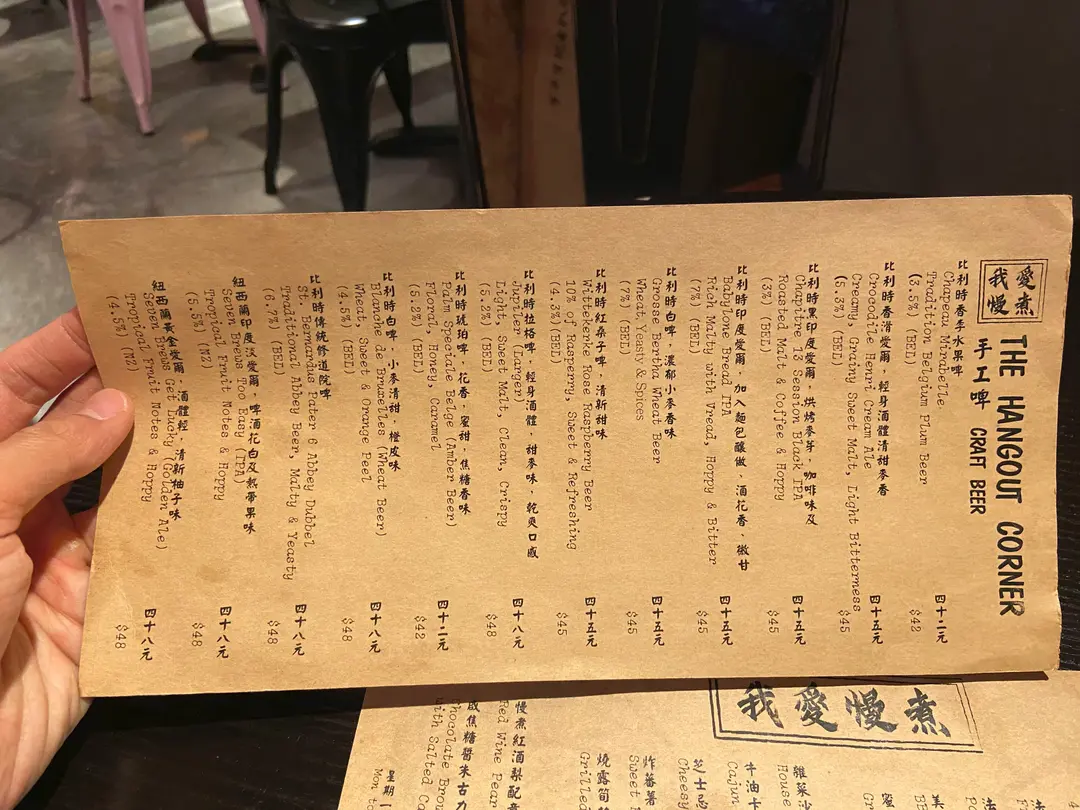 愛煮
我慢
THE HANGOUT CORNER
手工啤 CRAFT BEER
比利時香李水果啤 四十二元
Chapeau Mirabelle $42
Tradition Belgium Plum Beer
(3.5%) (BEL)
比利時香滑愛爾，輕身酒體清甜麥香 四十五元
Crocodile Henri Cream Ale $45
Creamy, Grainy Sweet Malt, Light Bitterness
(5.3%) (BEL)
比利時黑印度愛爾，烘烤麥芽，咖啡味及 四十五元
Chapitre 13 Session Black IPA $45
Roasted Malt & Coffee & Hoppy
(3%) (BEL)
比利時印度愛爾，加入麵包釀做，酒花香，微甘 四十五元
Babylone Bread IPA $45
Rich Malty with Bread, Hoppy & Bitter
(7%) (BEL)
比利時白啤，濃郁小麥香味 四十五元
Grosse Bertha Wheat Beer $45
Wheat, Yeasty & Spices
(7%) (BEL)
比利時紅桑子啤，清新甜味 四十五元
Wittekerke Rose Raspberry Beer $45
10% of Raspberry, Sweet & Refreshing
(4.3%)(BEL)
比利時拉格啤，輕身酒體，甜麥味，乾爽口感 四十八元
Jupiler (Larger) $48
Light, Sweet Malt, Clean, Crispy
(5.2%) (BEL)
比利時琥珀啤，花香，蜜甜，焦糖香味 四十二元
Palm Speciale Belge (Amber Beer) $42
Floral, Honey, Caramel
(5.2%) (BEL)
比利時白啤，小麥清甜，橙皮味 四十八元
Blanche de Bruxelles (What Beer) $48
Wheat, Sweet & Orange Peel
(4.5%) (BEL)
比利時傳統修道院啤 四十八元
St. Bernardus Pater 6 Abbey Dubbel $48
Traditional Abbey Beer, Malty & Yeasty
(6.7%) (BEL)
紐西蘭印度淡愛爾，啤酒花白及熱帶果味 四十八元
Seven Brews Too Easy (IPA) $48
Tropical Fruit Notes & Hoppy
(5.5%) (NZ)
紐西蘭黃金愛爾，酒體輕，清新柚子味 四十八元
Seven Brews Get Lucky (Golden Ale) $48
Tropical Fruit Notes & Hoppy
(4.5%) (NZ)
我愛慢煮
雜菜沙
House
牛油
Cajun
芝士
Cheesy
炸蕃薯
Sweet
燒露筍
Grilled
慢煮紅酒梨配
Red Wine Pear
焦糖醬朱古力
Chocolate Brow
with Salted Ca
星期一
Mon to